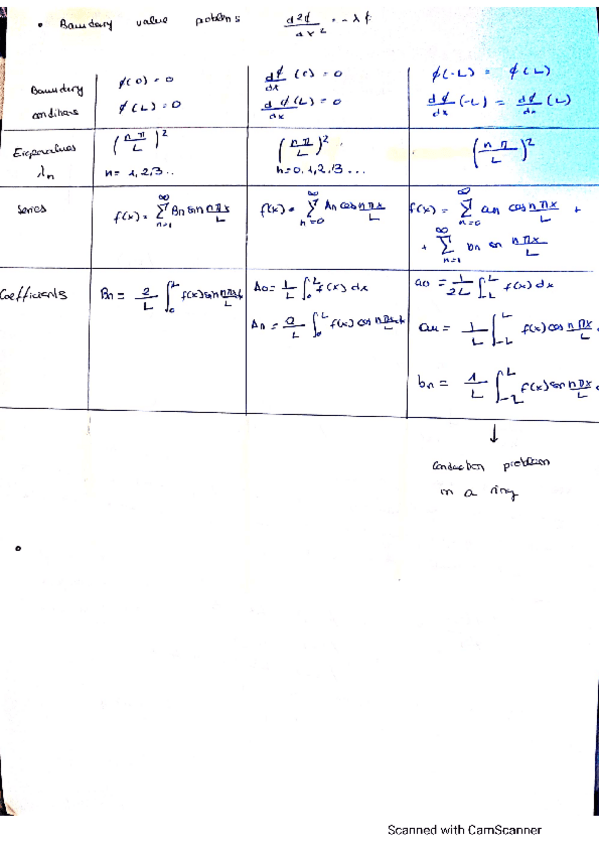 • Boundary value problems d²φ/dx² = -λφ
Boundary conditions φ(0) = 0 dφ/dx (0) = 0 φ(-L) = φ(L)
φ(L) = 0 dφ/dx (L) = 0 dφ/dx (-L) = dφ/dx (L)
Eigenvalues λn (nπ/L)² (nπ/L)² (nπ/L)²
n = 1,2,3.. n = 0,1,2,3...
Series f(x) = ∞Σn=1 Bn sin nπx/L f(x) = ∞Σn=0 An cos nπx/L f(x) = ∞Σn=0 an cos nπx/L +
+ ∞Σn=1 bn sin nπx/L
Coefficients Bn = 2/L ∫₀ᴸ f(x) sin nπx/L A0 = 1/L ∫₀ᴸ f(x) dx a0 = 1/2L ∫₋Lᴸ f(x) dx
An = 2/L ∫₀ᴸ f(x) cos nπx/L an = 1/L ∫₋Lᴸ f(x) cos nπx/L
bn = 1/L ∫₋Lᴸ f(x) sin nπx/L
↓
conduction problem
in a ring
•
Scanned with CamScanner